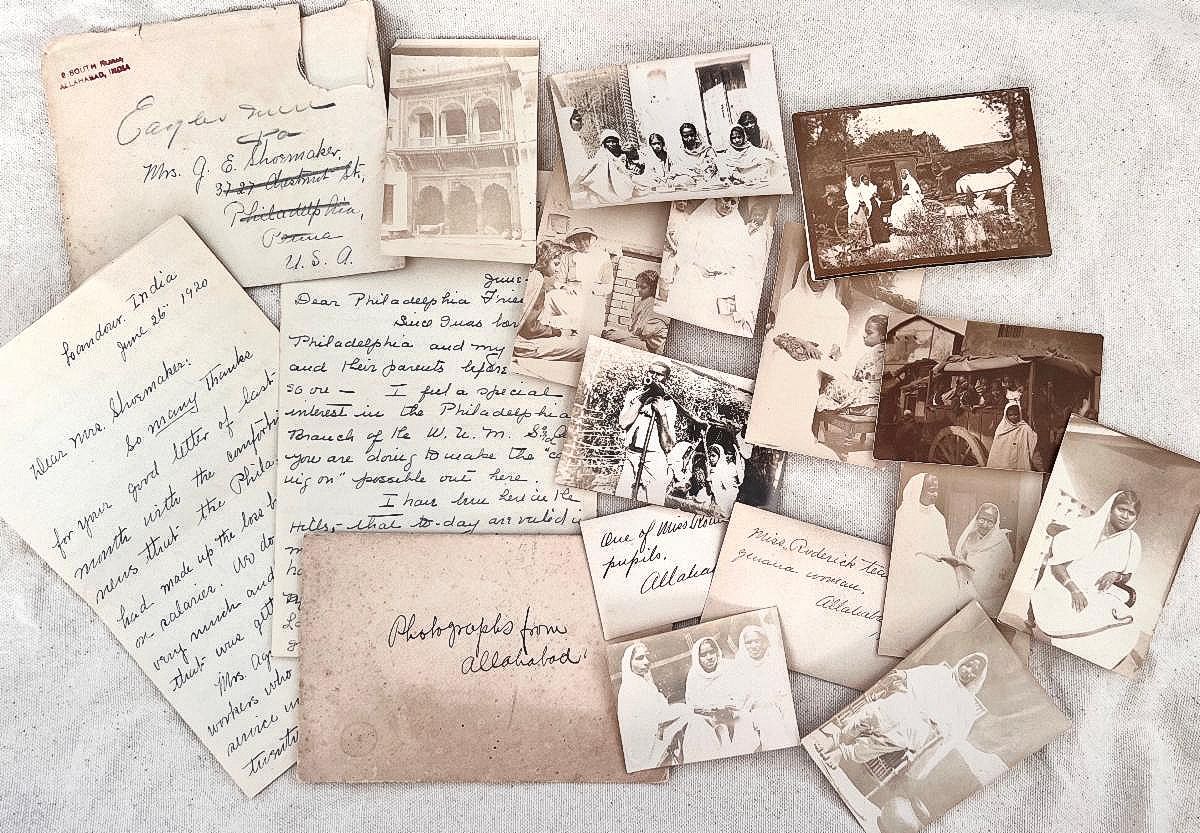 6 SOUTH ROAD,
ALLAHABAD, INDIA
Eagles Mere
Pa
Mrs. J. E. Shoemaker,
3727 Chestnut St.,
Philadelphia,
Penna
U. S. A.
Landour, India
June 26" 1920
Dear Mrs. Shoemaker:
So many thanks
for your good letter of last
month with the comforting
news that the Phila
had made up the loss
salaries. We do
very much and
that was
Mrs.
workers who
service
twenty
June
Dear Philadelphia
Since I was
Philadelphia and my
and their parents before
so ore — I feel a special
interest in the Philadelphia
Branch of the W. U. M. S.
you are doing to make the "
ing on" possible out here.
I have been here in the
Hills, - that to-day are veiled
Photographs from
Allahabad
One of Miss
pupils.
Allaha
Miss. Roderick tea
zenana woman.
Allahab